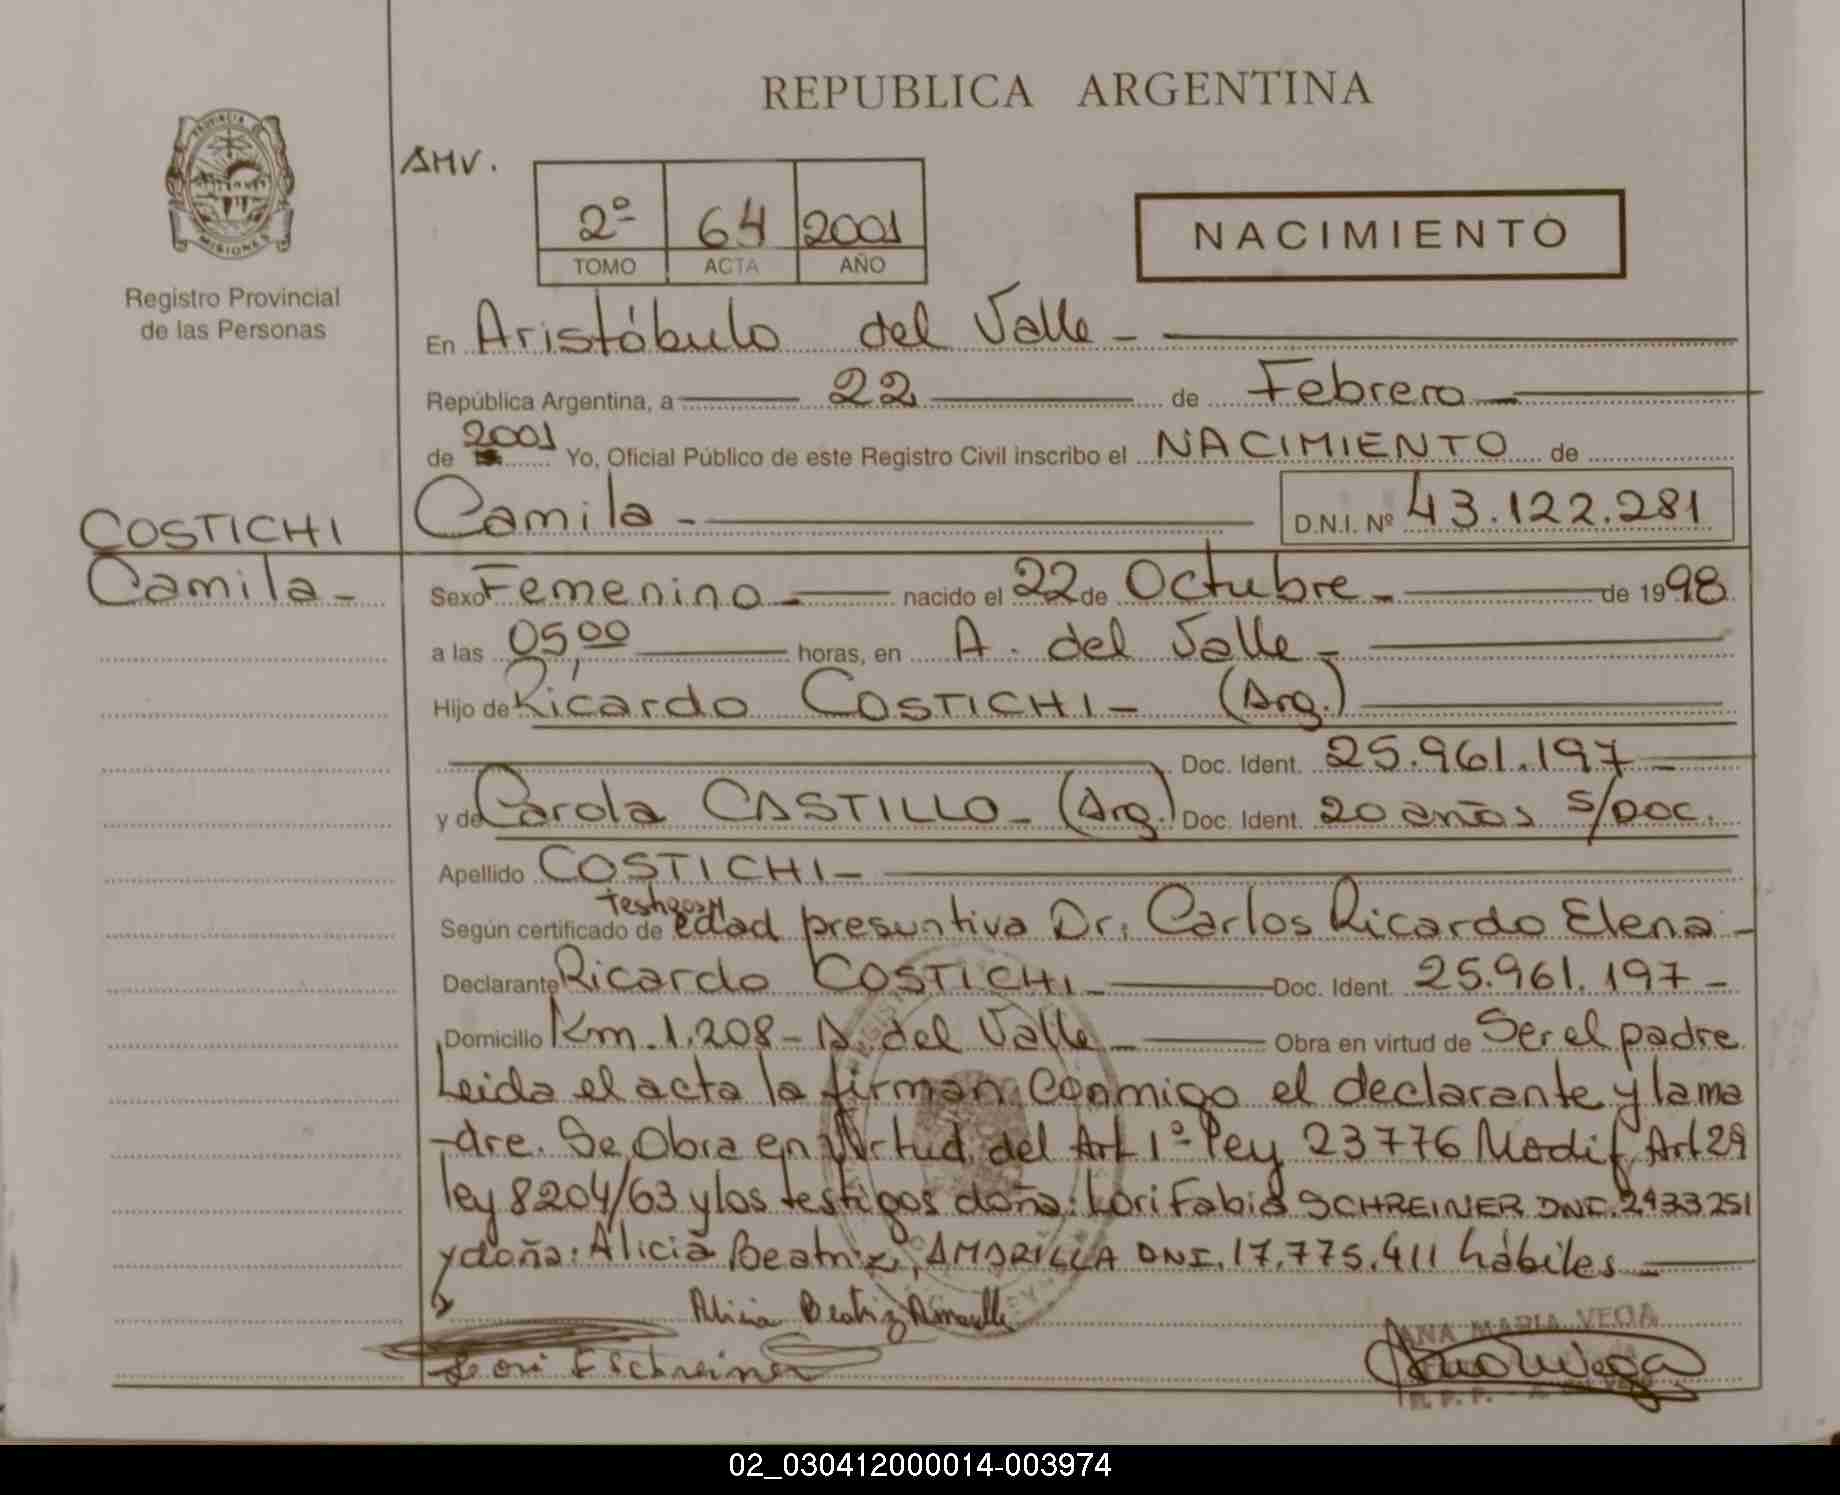 REPUBLICA ARGENTINA
PROVINCIA DE
MISIONES
Registro Provincial
de las Personas
AMV.
2º 64 2001
TOMO ACTA AÑO
NACIMIENTO
En Aristóbulo del Valle -
República Argentina, a 22 de Febrero
de 2001 Yo, Oficial Público de este Registro Civil inscribo el NACIMIENTO de
COSTICHI
Camila -
Camila - D.N.I. Nº 43.122.281
Sexo Femenino - nacido el 22 de Octubre - de 1998
a las 05,00 horas, en A. del Valle -
Hijo de Ricardo COSTICHI - (Arg.)
Doc. Ident. 25.961.197 -
y de Carola CASTILLO - (Arg.) Doc. Ident. 20 años S/DOC.
Apellido COSTICHI -
testigos y
Según certificado de edad presuntiva Dr. Carlos Ricardo Elena -
Declarante Ricardo COSTICHI - Doc. Ident. 25.961.197 -
Domicilio Km. 1.208 - A. del Valle - Obra en virtud de Ser el padre
Leida el acta la firman conmigo el declarante y la ma
-dre. Se Obra en Virtud del Art 1º Ley 23776 Modif. Art 29
ley 8204/63 y los testigos doña: Lori Fabia SCHREINER DNI. 2933251
y doña: Alicia Beatriz AMARILLA DNI. 17.775.411 hábiles -
Alicia Beatriz Amarilla
Lori F Schreiner
ANA MARIA VEGA
02_030412000014-003974